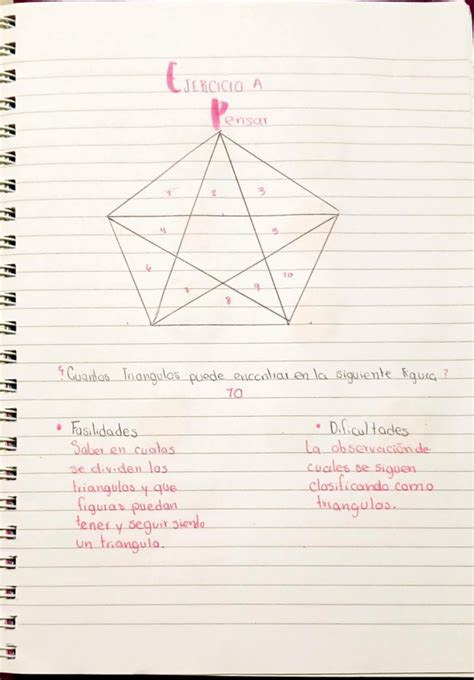 EJERCICIO A
Pensar
1 2 3
4 5
6 7 8 9 10
¿Cuantos Triangulos puede encontrar en la siguiente figura?
10
• Fasilidades
Saber en cualas
se dividen las
triangulos y que
figuras puedan
tener y seguir siendo
un triangulo.
• Dificultades
La observación de
cuales se siguen
clasificando como
triangulos.